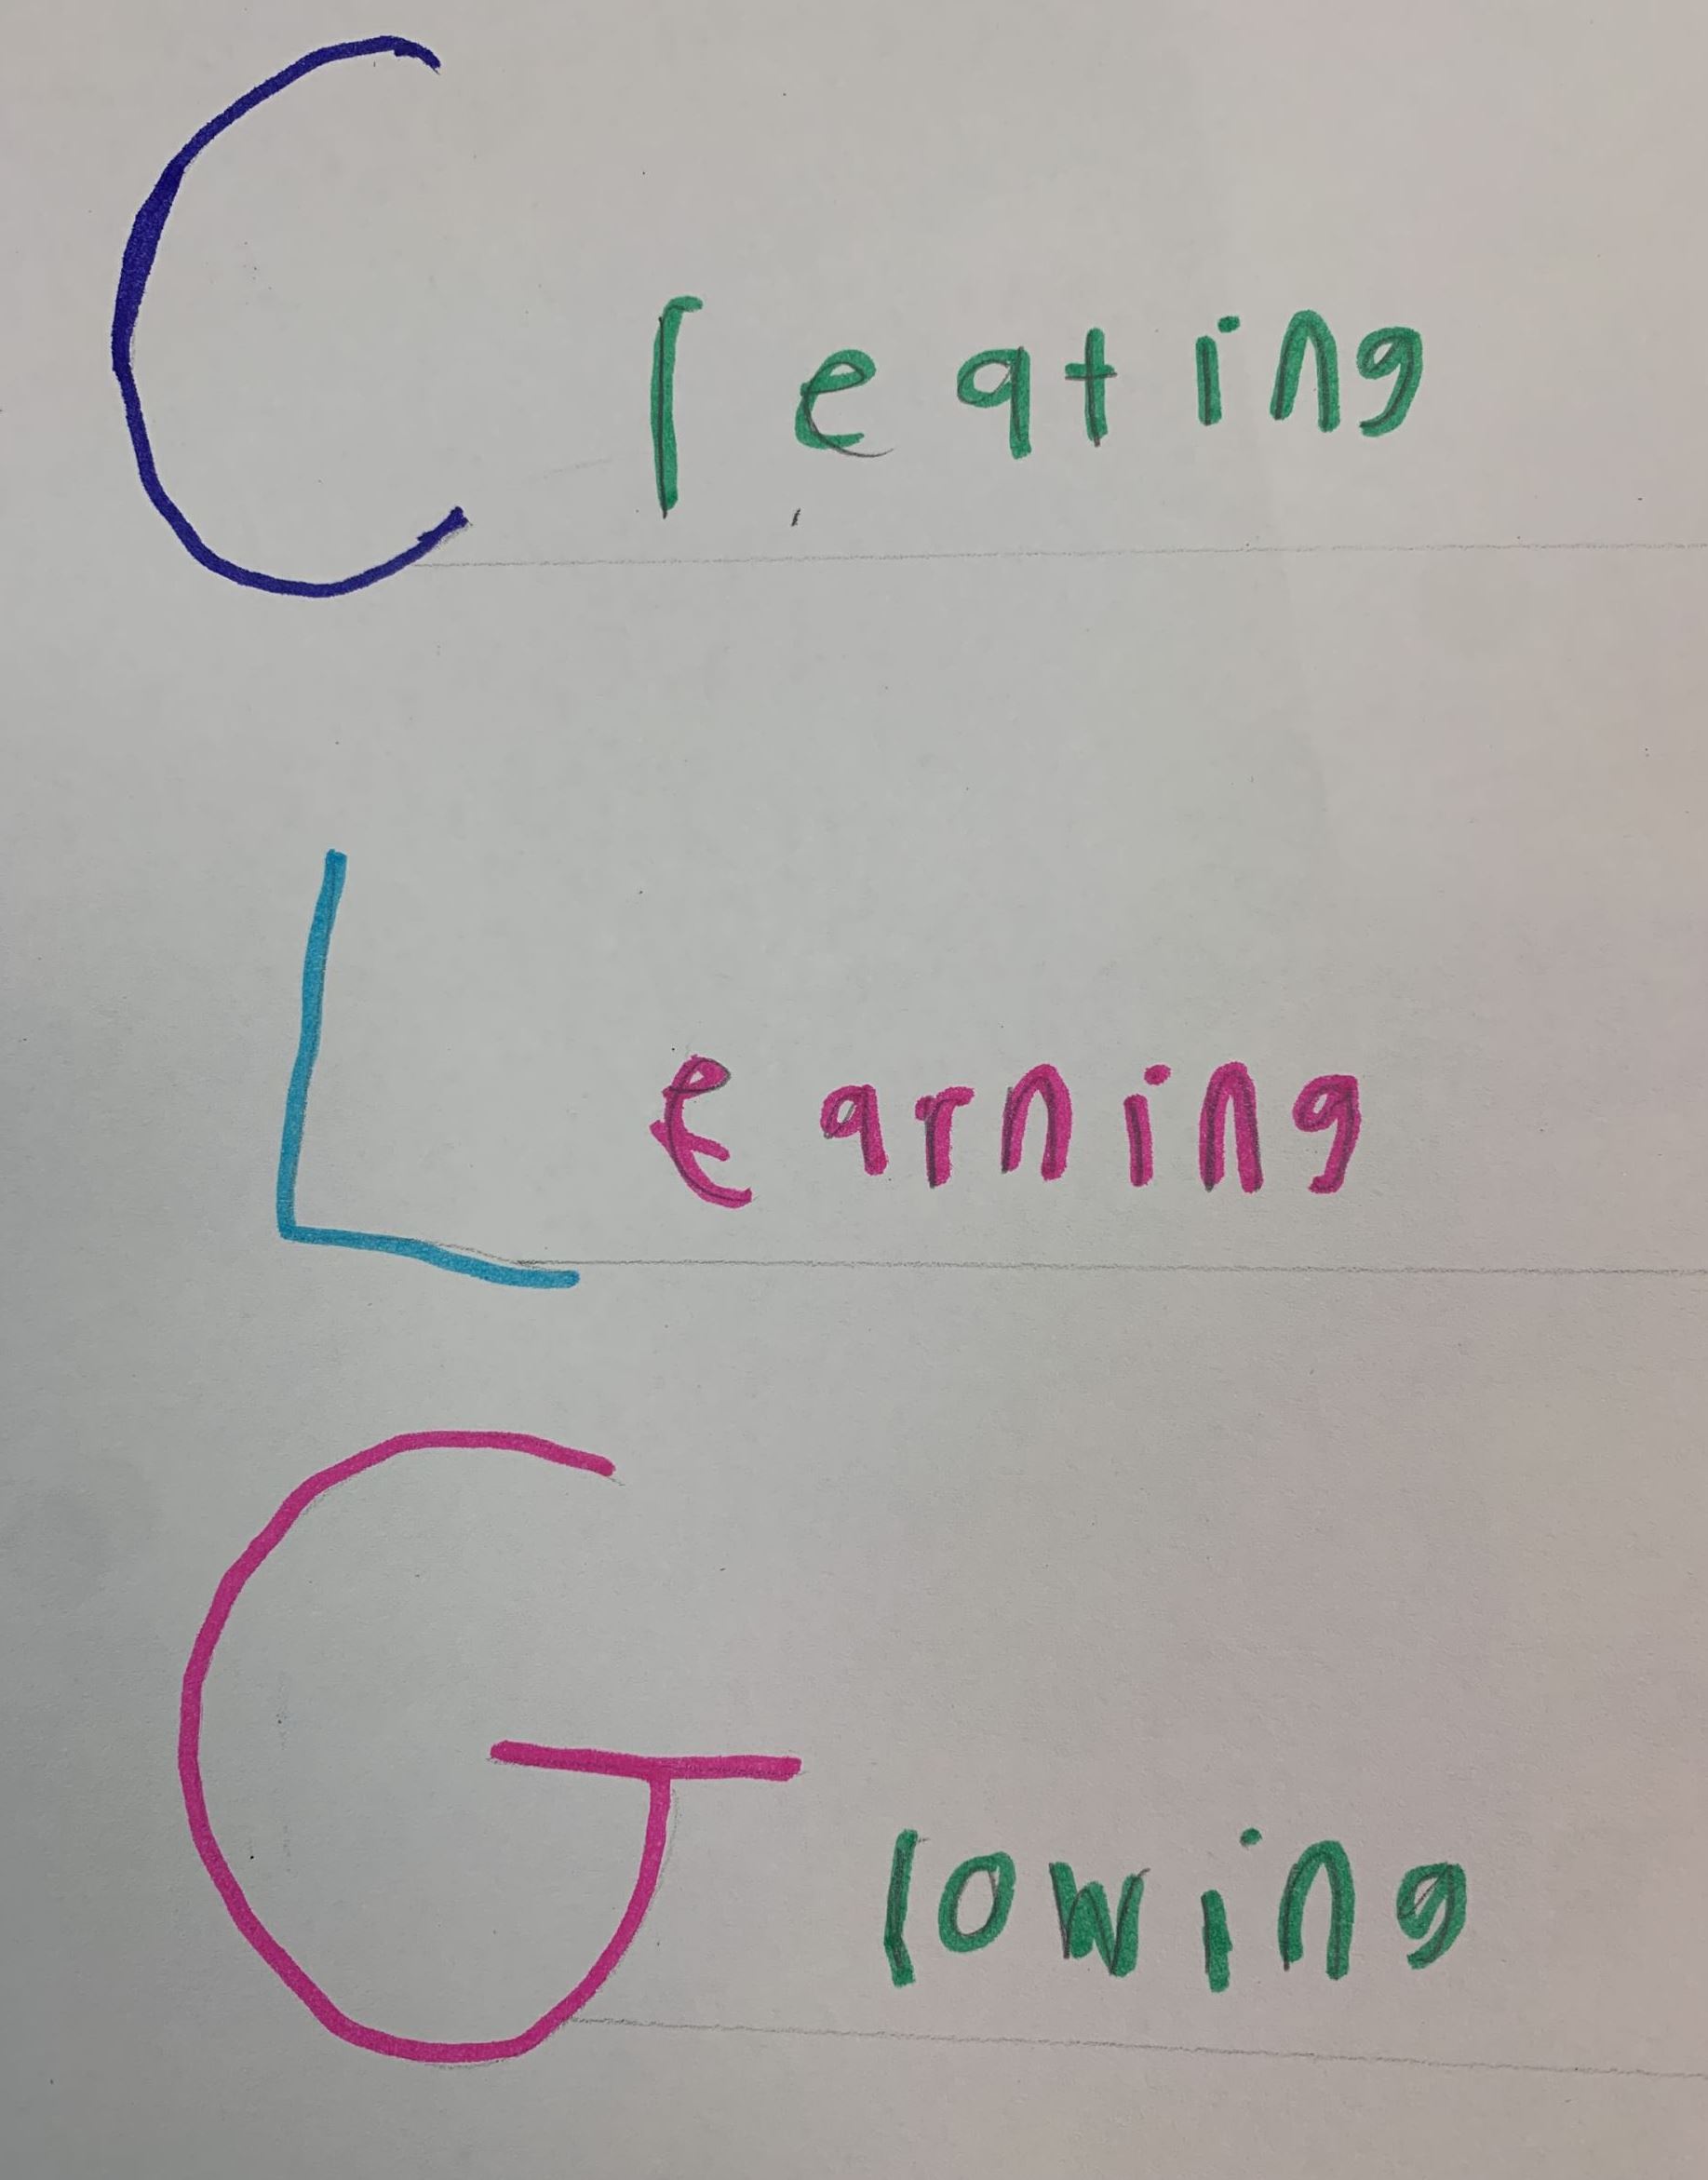 Creating
Learning
Glowing